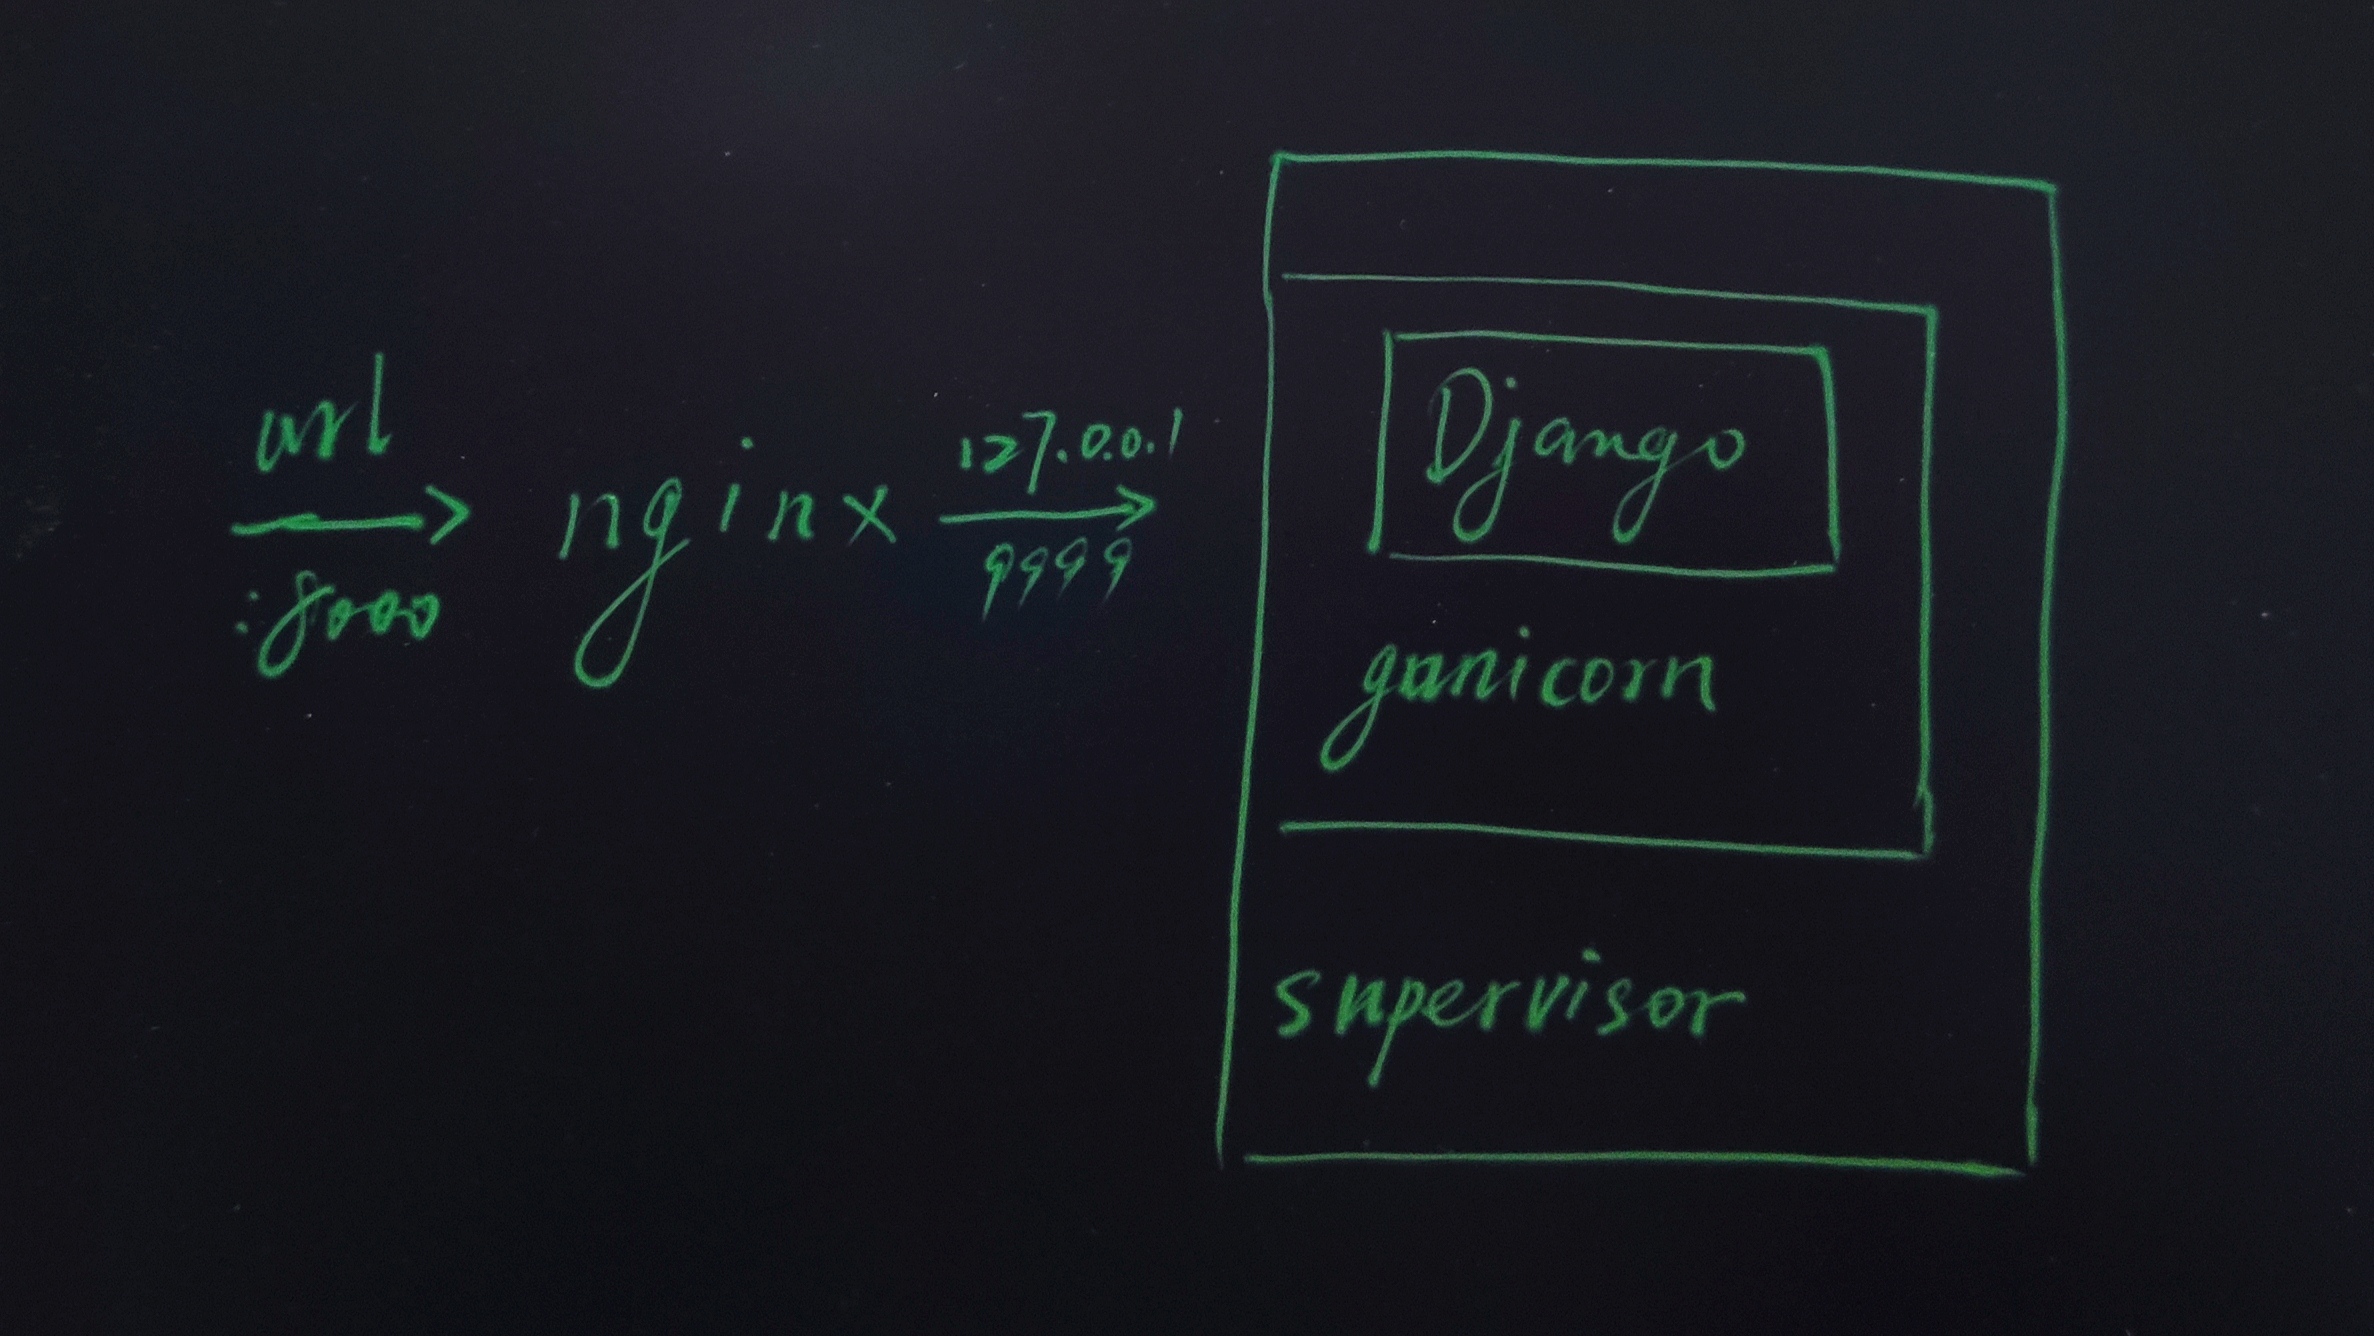 url
:8000
nginx
127.0.0.1
9999
Django
gunicorn
supervisor